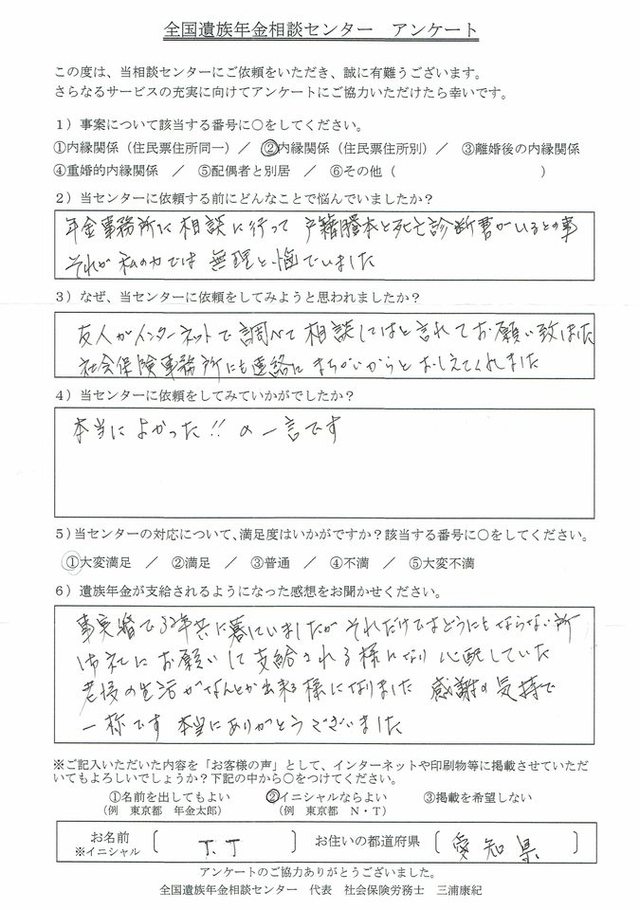 全国遺族年金相談センター　アンケート
この度は、当相談センターにご依頼をいただき、誠に有難うございます。
さらなるサービスの充実に向けてアンケートにご協力いただけたら幸いです。
1）事案について該当する番号に○をしてください。
①内縁関係（住民票住所同一）／　②内縁関係（住民票住所別）／　③離婚後の内縁関係
④重婚的内縁関係　／　⑤配偶者と別居　／　⑥その他（　　　　　　　　）
2）当センターに依頼する前にどんなことで悩んでいましたか？
年金事務所に相談に行って 戸籍謄本と死亡診断書がいるとの事
それが私の力では無理と悩でいました
3）なぜ、当センターに依頼をしてみようと思われましたか？
友人がインターネットで調べて相談してはと言れてお願い致ました
社会保険事務所にも連絡に まちがいからと おしえてくれました
4）当センターに依頼をしてみていかがでしたか？
本当によかった!! の一言です
5）当センターの対応について、満足度はいかがですか？該当する番号に○をしてください。
①大変満足　／　②満足　／　③普通　／　④不満　／　⑤大変不満
6）遺族年金が支給されるようになった感想をお聞かせください。
事実婚で32年共に暮していましたが それだけではどうにもならない所
御社にお願いして支給される様になり 心配していた
老後の生活がなんとか出来る様になりました 感謝の気持で
一杯です 本当にありがとうございました
※ご記入いただいた内容を「お客様の声」として、インターネットや印刷物等に掲載させていただ
いてもよろしいでしょうか？下記の中から○をつけてください。
①名前を出してもよい　②イニシャルならよい　③掲載を希望しない
（例　東京都　年金太郎）　（例　東京都　N・T）
お名前　T.T　お住いの都道府県　愛知県
※イニシャル
アンケートのご協力ありがとうございました。
全国遺族年金相談センター　代表　社会保険労務士　三浦康紀